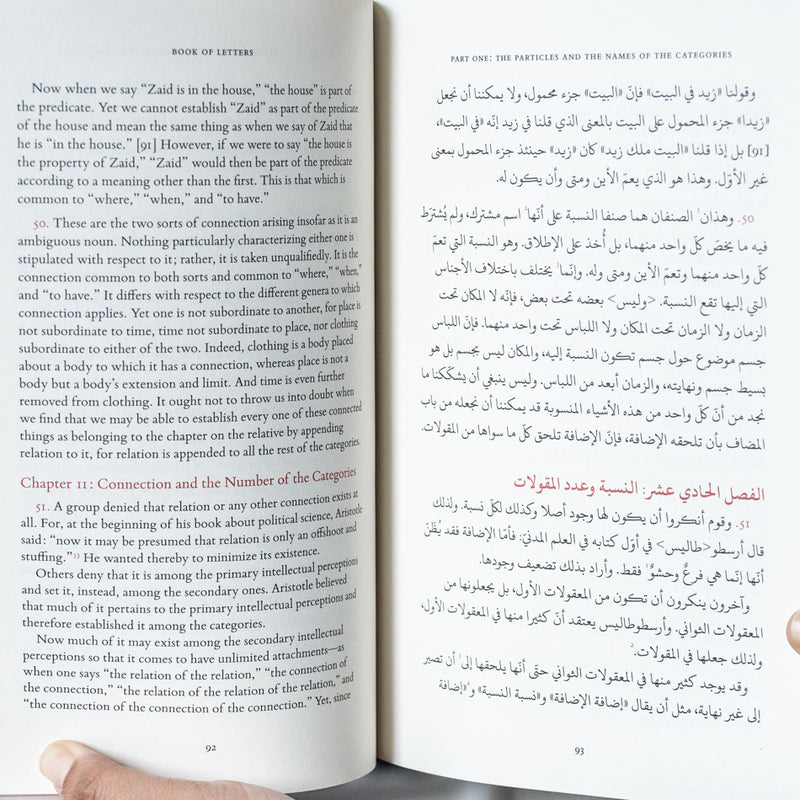 BOOK OF LETTERS
Now when we say “Zaid is in the house,” “the house” is part of
the predicate. Yet we cannot establish “Zaid” as part of the predicate
of the house and mean the same thing as when we say of Zaid that
he is “in the house.” [91] However, if we were to say “the house is
the property of Zaid,” “Zaid” would then be part of the predicate
according to a meaning other than the first. This is that which is
common to “where,” “when,” and “to have.”
50. These are the two sorts of connection arising insofar as it is an
ambiguous noun. Nothing particularly characterizing either one is
stipulated with respect to it; rather, it is taken unqualifiedly. It is the
connection common to both sorts and common to “where,” “when,”
and “to have.” It differs with respect to the different genera to which
connection applies. Yet one is not subordinate to another, for place is
not subordinate to time, time not subordinate to place, nor clothing
subordinate to either of the two. Indeed, clothing is a body placed
about a body to which it has a connection, whereas place is not a
body but a body’s extension and limit. And time is even further
removed from clothing. It ought not to throw us into doubt when
we find that we may be able to establish every one of these connected
things as belonging to the chapter on the relative by appending
relation to it, for relation is appended to all the rest of the categories.
Chapter 11: Connection and the Number of the Categories
51. A group denied that relation or any other connection exists at
all. For, at the beginning of his book about political science, Aristotle
said: “now it may be presumed that relation is only an offshoot and
stuffing.”⁵³ He wanted thereby to minimize its existence.
Others deny that it is among the primary intellectual perceptions
and set it, instead, among the secondary ones. Aristotle believed
that much of it pertains to the primary intellectual perceptions and
therefore established it among the categories.
Now much of it may exist among the secondary intellectual
perceptions so that it comes to have unlimited attachments—as
when one says “the relation of the relation,” “the connection of
the connection,” “the relation of the relation of the relation,” and
“the connection of the connection of the connection.” Yet, since
92
PART ONE: THE PARTICLES AND THE NAMES OF THE CATEGORIES
وقولنا «زيد في البيت» فإنّ «البيت» جزء محمول، ولا يمكننا أن نجعل
«زيدا» جزء المحمول على البيت بالمعنى الذي قلنا في زيد إنّه «في البيت»،
[91] بل إذا قلنا «البيت ملك زيد» كان «زيد» حينئذ جزء المحمول بمعنى
غير الأوّل. وهذا هو الذي يعمّ الأين ومتى وأن يكون له.
50. وهذان الصنفان هما صنفا النسبة على أنّها اسم مشترك، ولم يُشترَط
فيه ما يخصّ كلّ واحد منهما، بل أُخذ على الإطلاق. وهو النسبة التي تعمّ
كلّ واحد منهما وتعمّ الأين ومتى وله. وإنّما يختلف باختلاف الأجناس
التي إليها تقع النسبة. <وليس> بعضه تحت بعض، فإنّه لا المكان تحت
الزمان ولا الزمان تحت المكان ولا اللباس تحت واحد منهما. فإنّ اللباس
جسم موضوع حول جسم تكون النسبة إليه، والمكان ليس بجسم بل هو
بسيط جسم ونهايته، والزمان أبعد من اللباس. وليس ينبغي أن يشكّكنا ما
نجد من أنّ كلّ واحد من هذه الأشياء المنسوبة قد يمكننا أن نجعله من باب
المضاف بأن تلحقه الإضافة، فإنّ الإضافة تلحق كلّ ما سواها من المقولات.
الفصل الحادي عشر: النسبة وعدد المقولات
51. وقوم أنكروا أن يكون لها وجود أصلا وكذلك لكلّ نسبة. ولذلك
قال أرسطو<طاليس> في أوّل كتابه في العلم المدنيّ: فأمّا الإضافة فقد يُظَنّ
أنّها إنّما هي فرعٌ وحشوٌ فقط. وأراد بذلك تضعيف وجودها.
وآخرون ينكرون أن تكون من المعقولات الأول، بل يجعلونها من
المعقولات الثواني. وأرسطوطاليس يعتقد أنّ كثيرا منها في المعقولات الأول،
ولذلك جعلها في المقولات.
وقد يوجد كثير منها في المعقولات الثواني حتّى أنّها يلحقها إلى أن تصير
إلى غير نهاية، مثل أن يقال «إضافة الإضافة» و«نسبة النسبة» و«إضافة
93